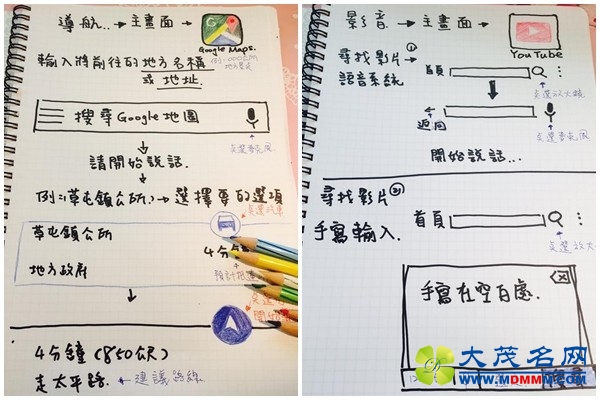 導航..→主畫面→
Google Maps.
輸入將前往的地方名稱
或 地址.
搜尋Google地圖
點選麥克風
請開始說話.
例:(草屯鎮公所.)→選擇要的選項
點選汽車
草屯鎮公所
4分鐘
地方政府
4分鐘(850公尺)
走太平路. ←建議路線
影音→主畫面→
YouTube
尋找影片①→
語音系統
首頁
點選放大鏡
返回
點選麥克風
開始說話...
尋找影片②→
手寫輸入.
首頁
點選放大
手寫在空白處.
大茂名网
www.MDMMW.COM